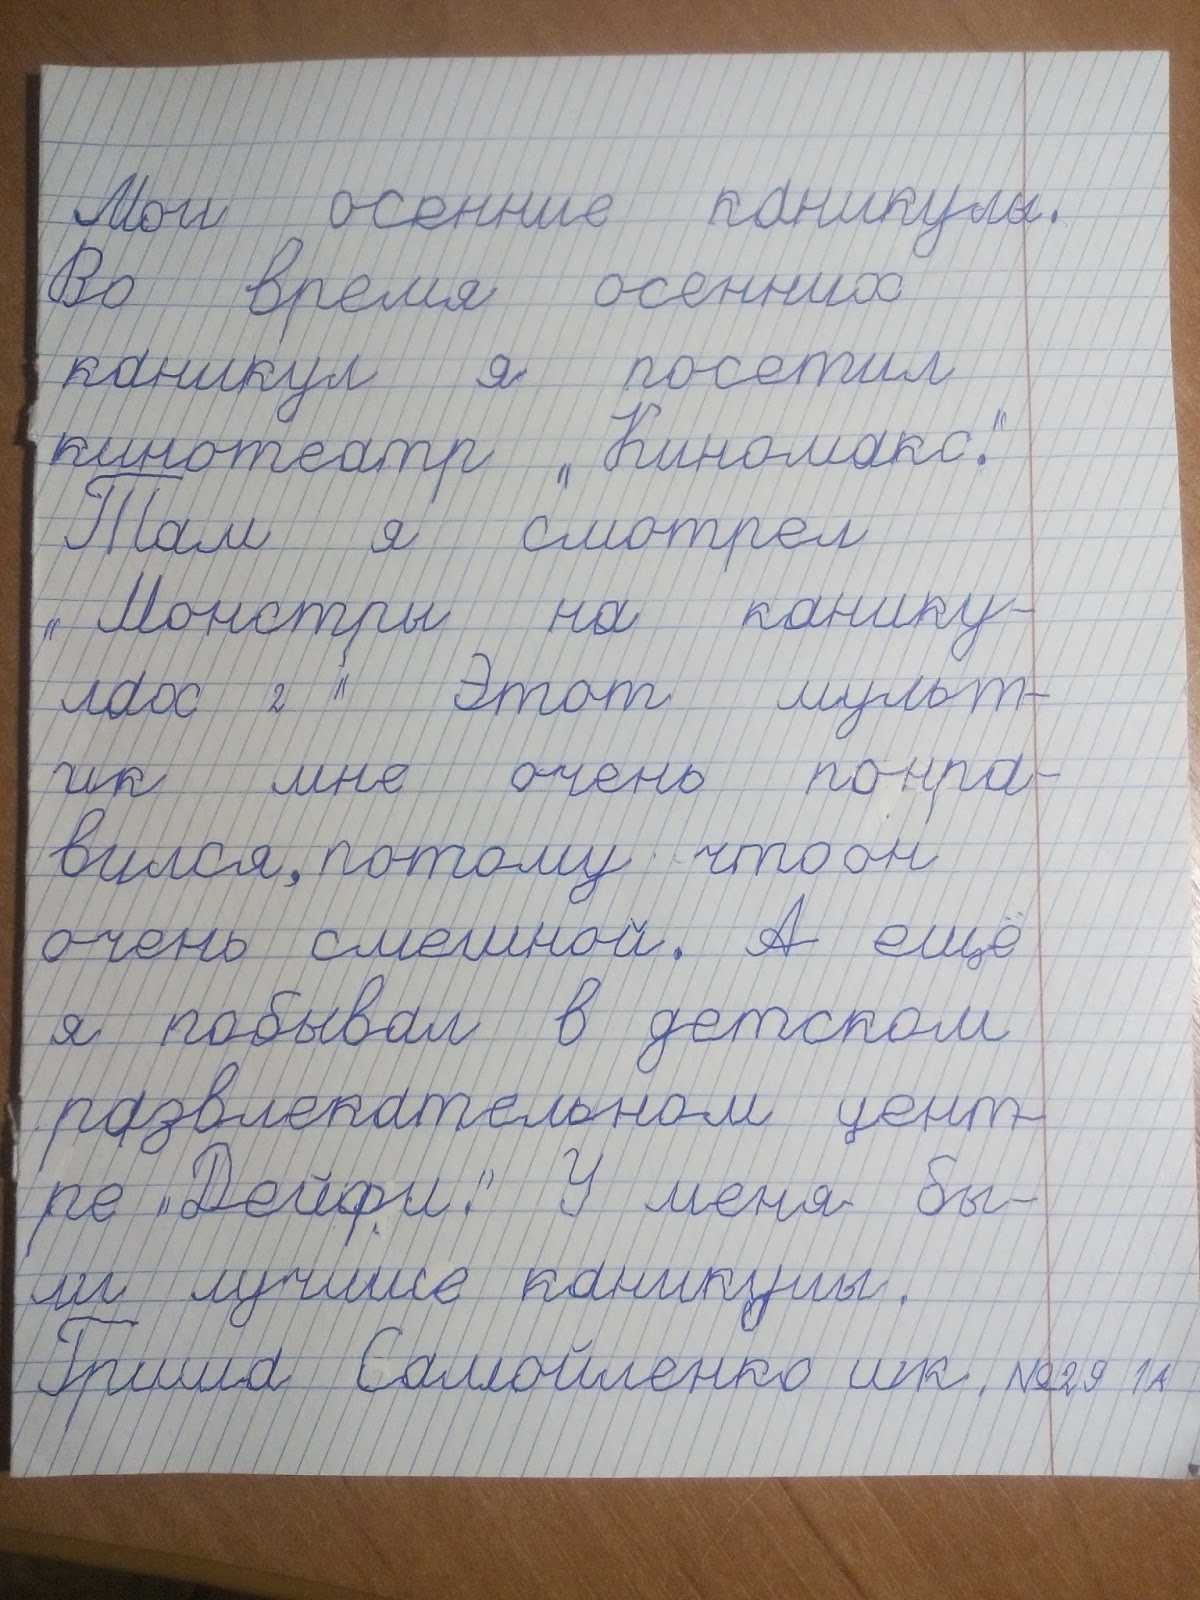 Мои осенние каникулы.
Во время осенних
каникул я посетил
кинотеатр „Киномакс."
Там я смотрел
„Монстры на канику-
лах 2" Этот мульт-
ик мне очень понра-
вился, потому что он
очень смешной. А ещё
я побывал в детском
развлекательном цент-
ре „Дейфи." У меня бы-
ли лучшие каникулы.
Гриша Самойленко шк. №29 1А